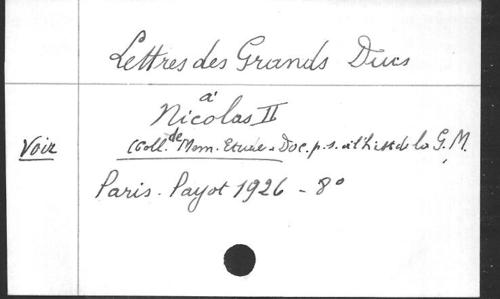 Lettres des Grands Ducs
à
Nicolas II
Voir (Coll. de Mém. Etudes Doc. p. s. à l'hist de la G. M.
Paris. Payot 1926 - 8°